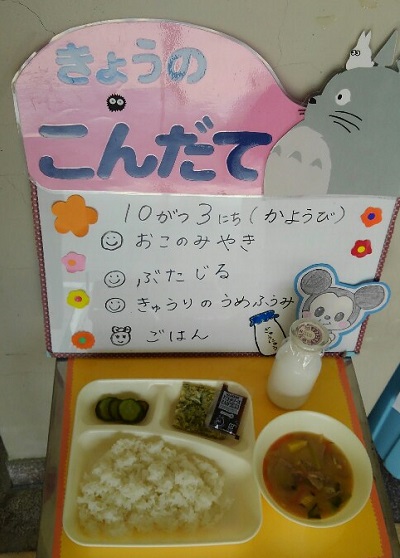 きょうの
こんだて
10がつ3にち(かようび)
おこのみやき
ぶたじる
きゅうりのうめふうみ
ごはん